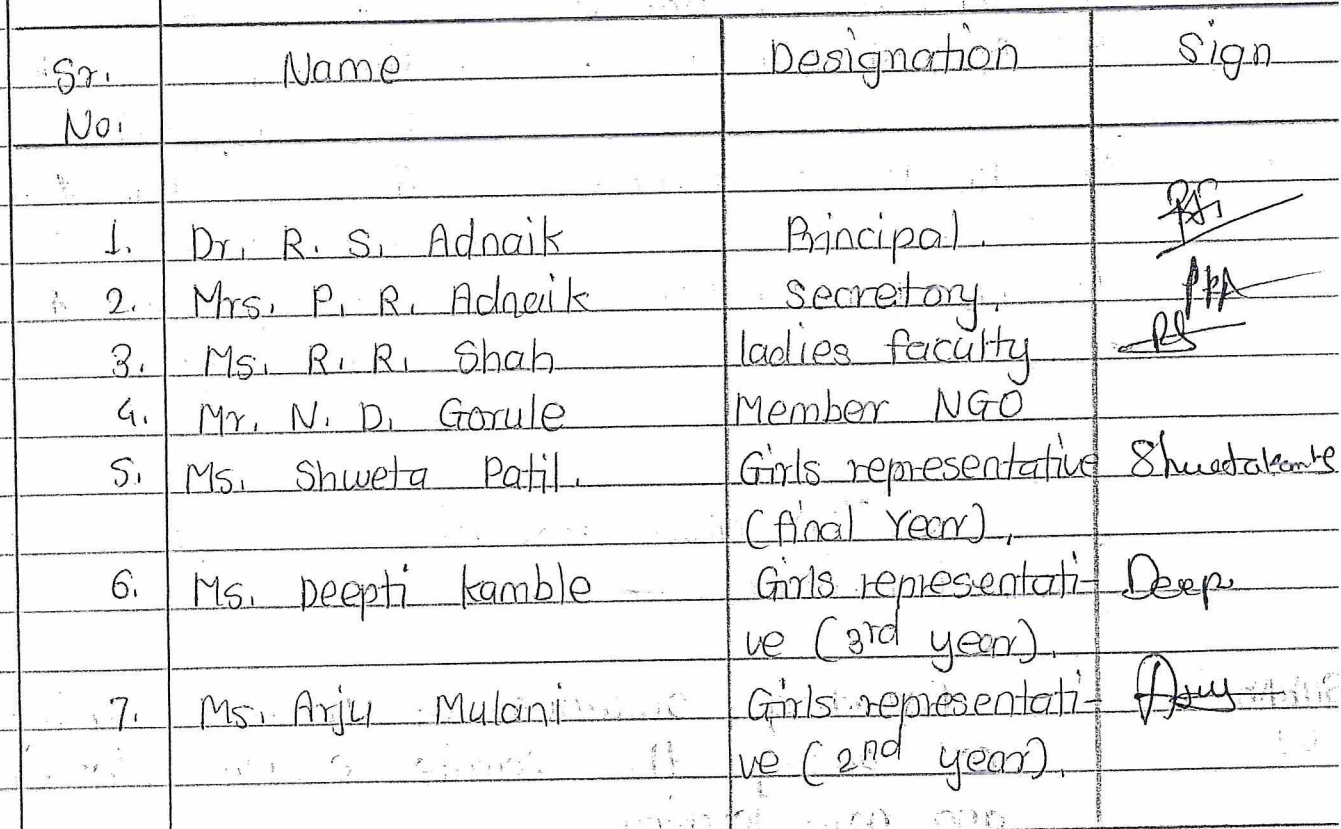 Sr. Name Designation Sign
No.
1. Dr. R. S. Adnaik Principal.
2. Mrs. P. R. Adnaik Secretory.
3. Ms. R. R. Shah ladies faculty
4. Mr. N. D. Gorule Member NGO
5. Ms. Shweta Patil. Girls representative
(final Year).
6. Ms. Deepti kamble Girls representati- Deep
ve (3rd year).
7. Ms. Arju Mulani Girls representati-
ve (2nd year).